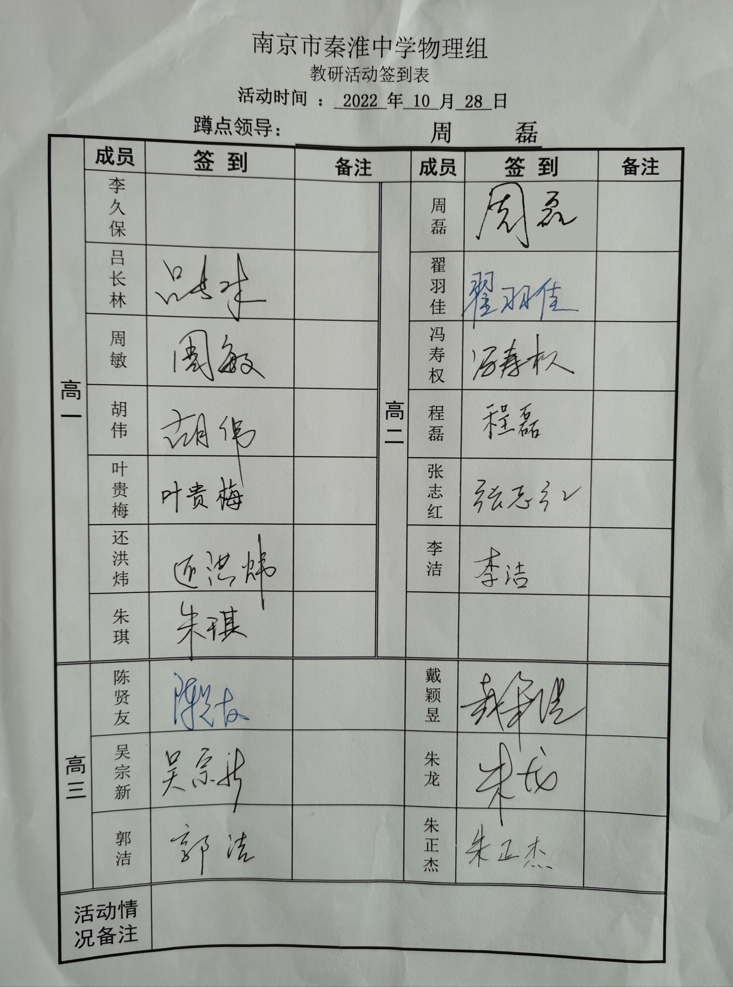 南京市秦淮中学物理组
教研活动签到表
活动时间 ： 2022 年 10 月 28 日
蹲点领导： 周 磊
成员 签 到 备注 成员 签 到 备注
高一
李久保
吕长林 吕长林
周敏 周敏
胡伟 胡伟
叶贵梅 叶贵梅
还洪炜 还洪炜
朱琪 朱琪
高二
周磊 周磊
翟羽佳 翟羽佳
冯寿权 冯寿权
程磊 程磊
张志红 张志红
李洁 李洁
高三
陈贤友 陈贤友
吴宗新 吴宗新
郭洁 郭洁
戴颖昱
朱龙 朱龙
朱正杰 朱正杰
活动情
况备注